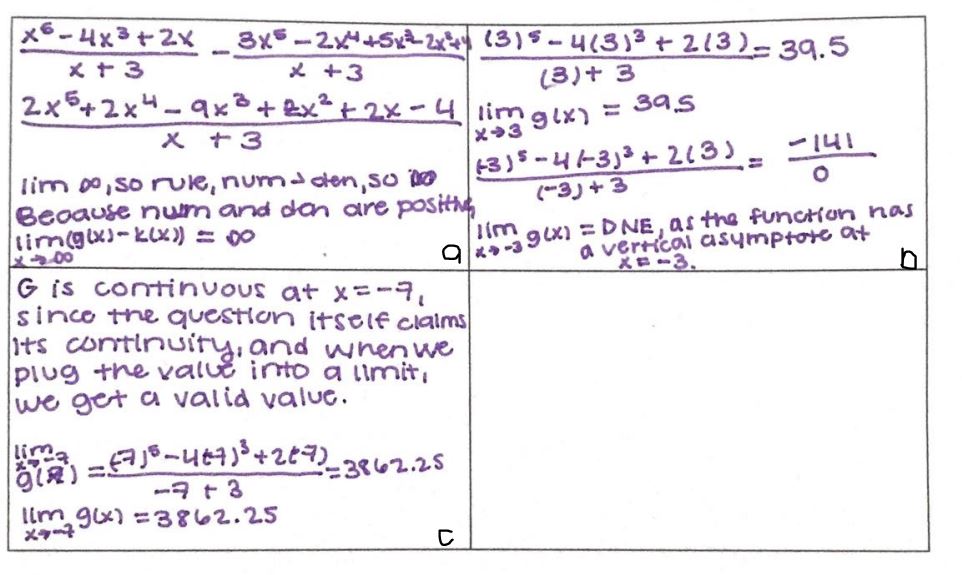 x⁵ - 4x³ + 2x / x + 3 - 3x⁵ - 2x⁴ + 5x³ - 2x² + 4 / x + 3
2x⁵ + 2x⁴ - 9x³ + 2x² + 2x - 4 / x + 3
lim ∞, so rule, num > den, so ∞
Because num and den are positive,
lim (g(x) - k(x)) = ∞
x→∞
a
(3)⁵ - 4(3)³ + 2(3) / (3) + 3 = 39.5
lim x→3 g(x) = 39.5
(-3)⁵ - 4(-3)³ + 2(3) / (-3) + 3 = -141 / 0
lim x→-3 g(x) = DNE, as the function has
a vertical asymptote at
x = -3.
b
G is continuous at x = -7,
since the question itself claims
its continuity, and when we
plug the value into a limit,
we get a valid value.
lim x→-7 g(x) = (-7)⁵ - 4(-7)³ + 2(-7) / -7 + 3 = 3862.25
lim x→-7 g(x) = 3862.25
c